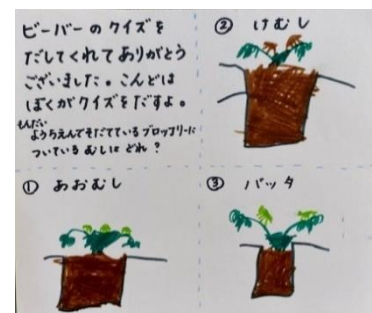 ビーバーのクイズを
だしてくれてありがとう
ございました。こんどは
ぼくがクイズをだすよ。
もんだい
ようちえんでそだてているブロッコリーに
ついているむしはどれ？
② けむし
① あおむし
③ バッタ